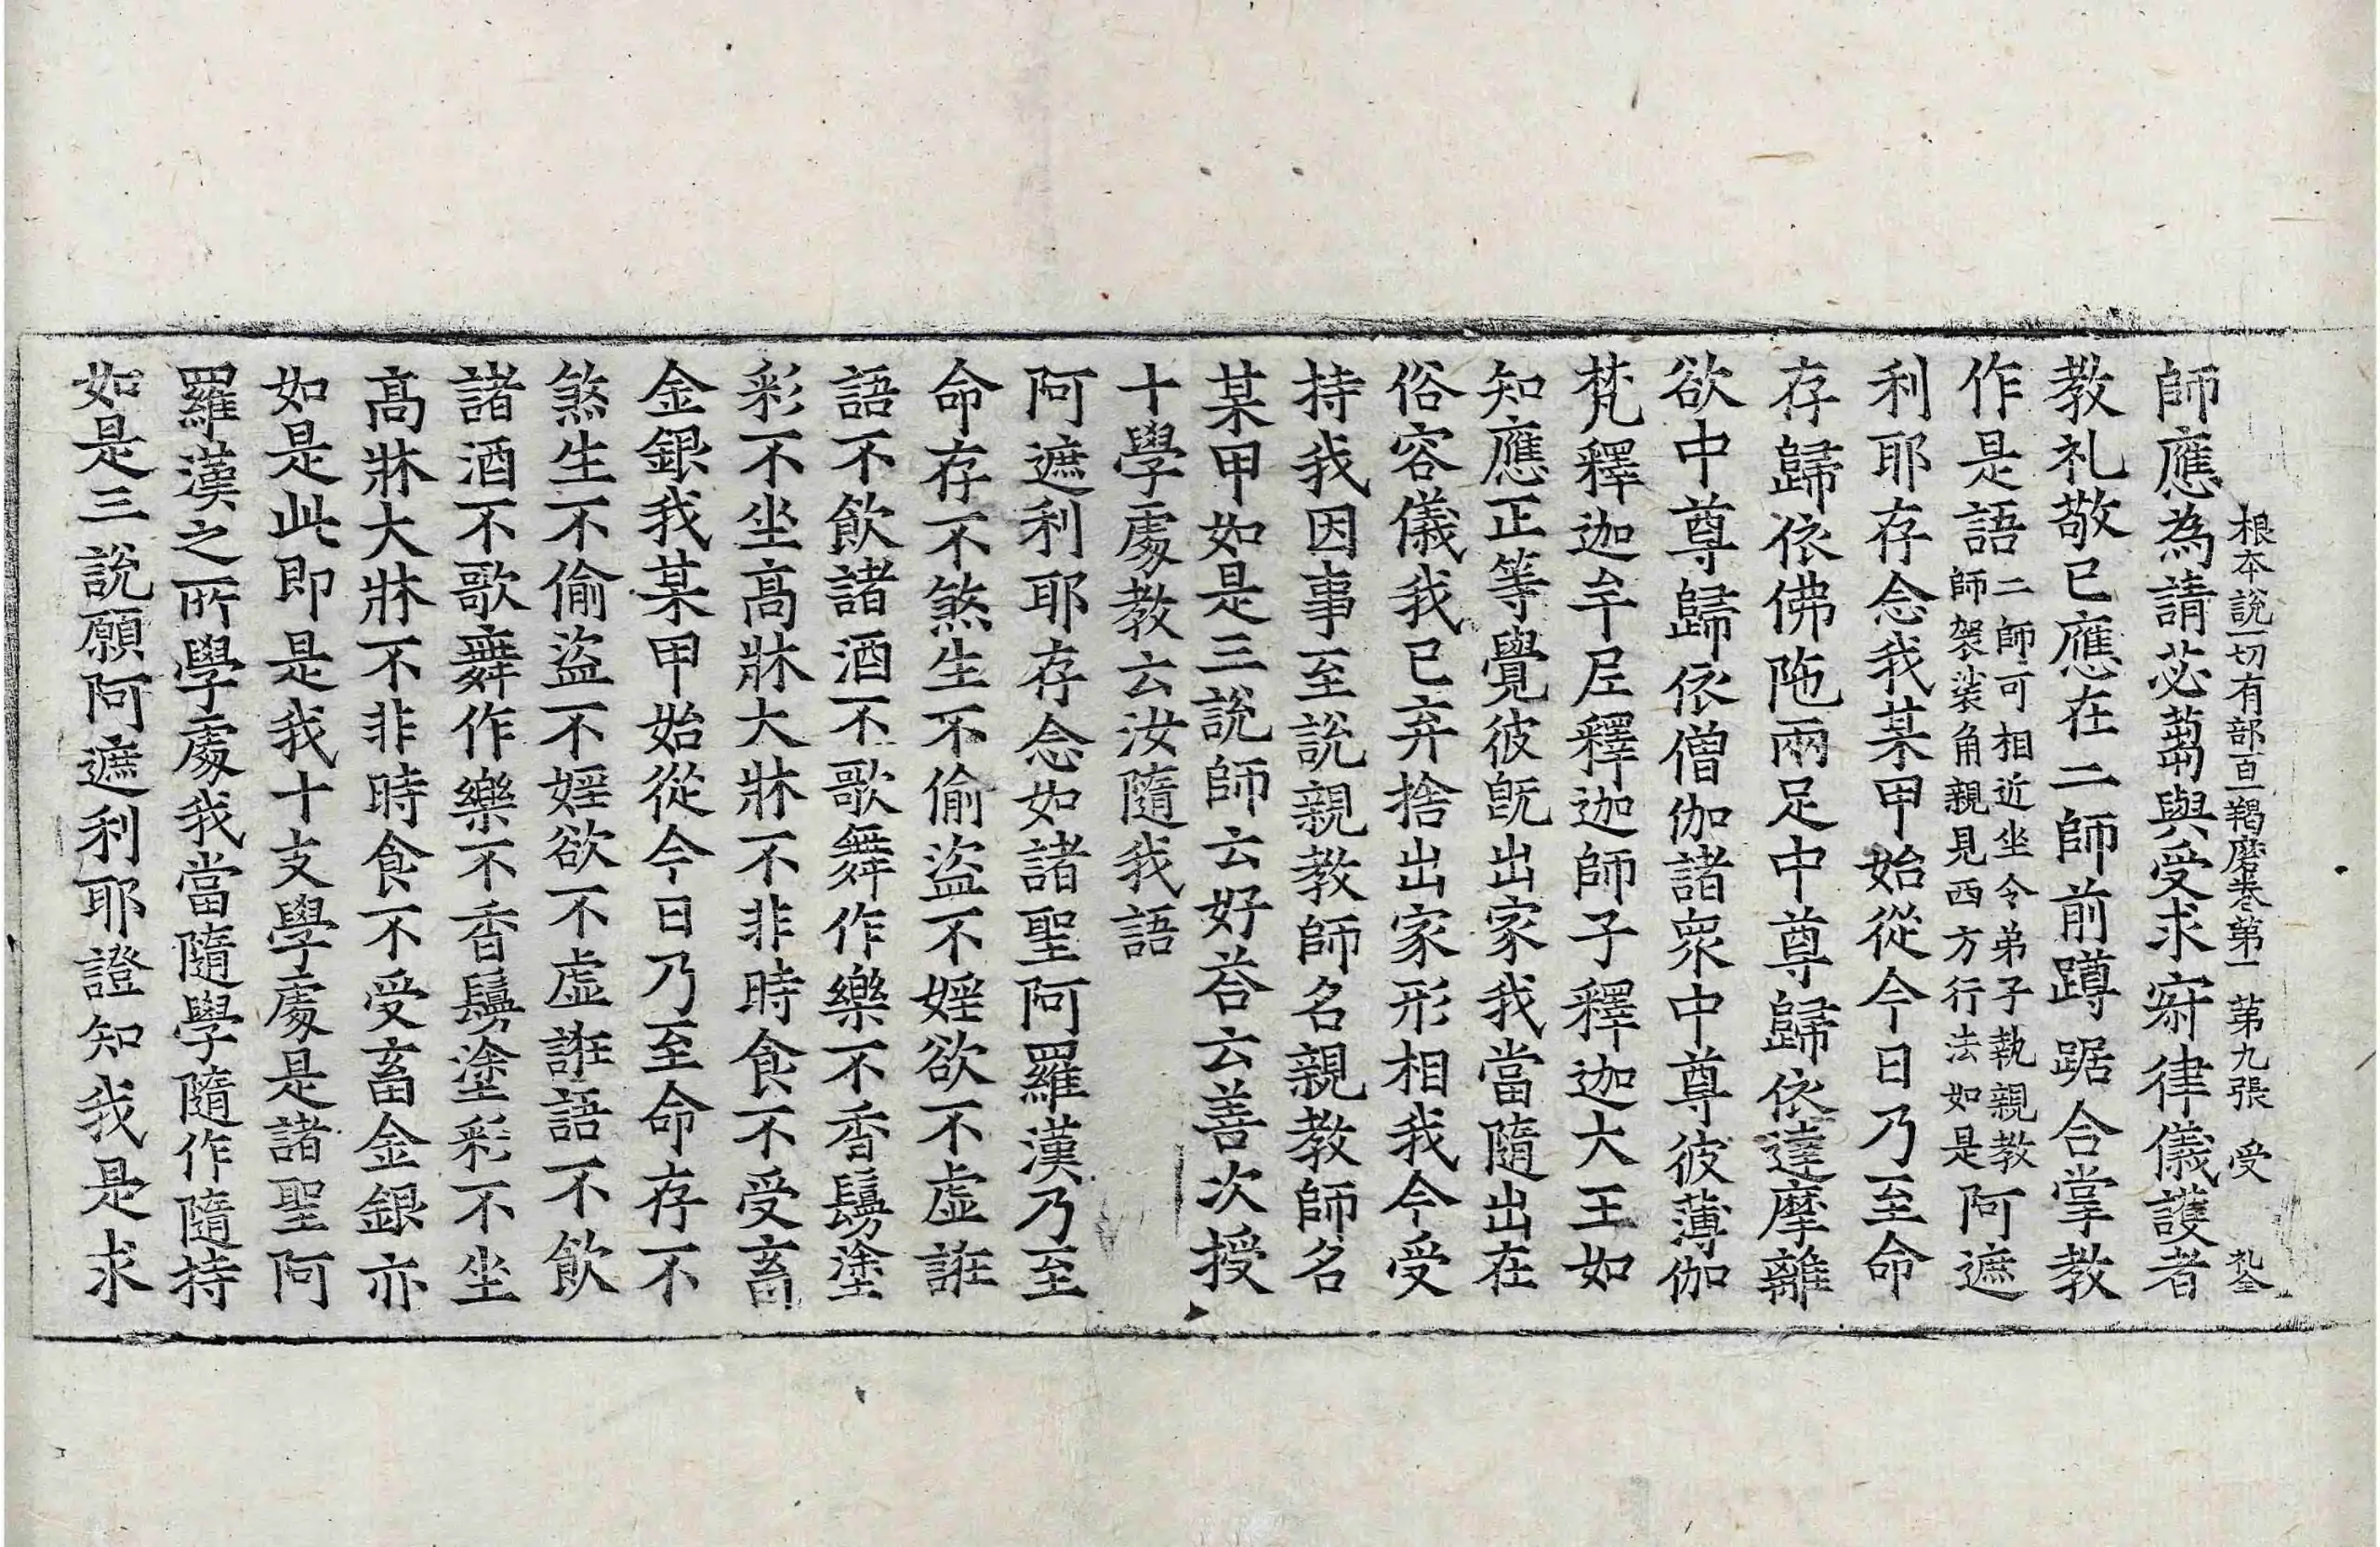 根本說一切有部百一羯磨卷第一 第九張 受 礼全
師應為請苾蒭與受求寂律儀護者
教礼敬已應在二師前蹲踞合掌教
作是語二師可相近坐令弟子執親教師袈裟角親見西方行法如是阿遮
利耶存念我某甲始從今日乃至命
存歸依佛陁兩足中尊歸依達摩離
欲中尊歸依僧伽諸衆中尊彼薄伽
梵釋迦牟尼釋迦師子釋迦大王如
知應正等覺彼旣出家我當隨出在
俗容儀我已弃捨出家形相我今受
持我因事至說親教師名親教師名
某甲如是三說師云好荅云善次授
十學處教云汝隨我語
阿遮利耶存念如諸聖阿羅漢乃至
命存不煞生不偷盜不婬欲不虛誑
語不飲諸酒不歌舞作樂不香鬘塗
彩不坐高牀大牀不非時食不受畜
金銀我某甲始從今日乃至命存不
煞生不偷盜不婬欲不虛誑語不飲
諸酒不歌舞作樂不香鬘塗彩不坐
高牀大牀不非時食不受畜金銀亦
如是此即是我十支學處是諸聖阿
羅漢之所學處我當隨學隨作隨持
如是三說願阿遮利耶證知我是求